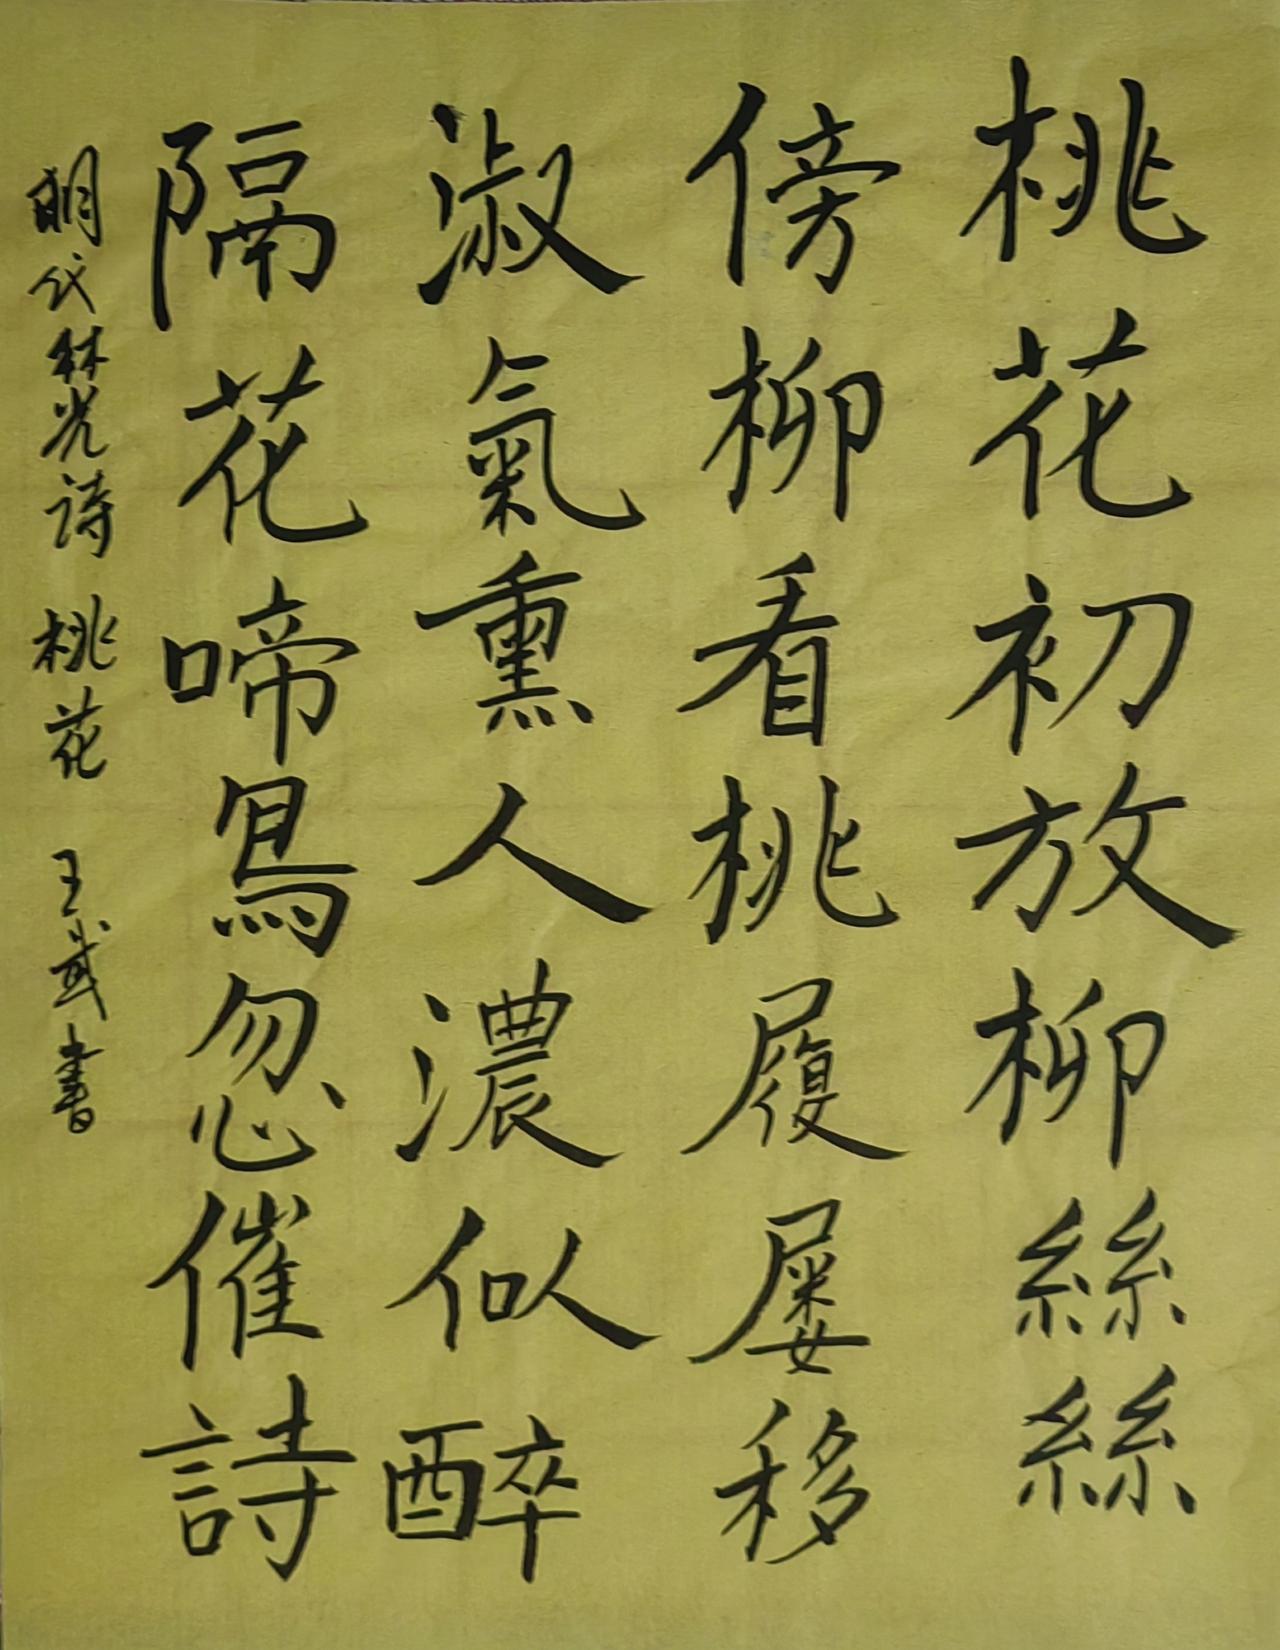 桃花初放柳絲絲
傍柳看桃履屢移
淑氣熏人濃似醉
隔花啼鳥忽催詩
明代林光詩 桃花 王武書